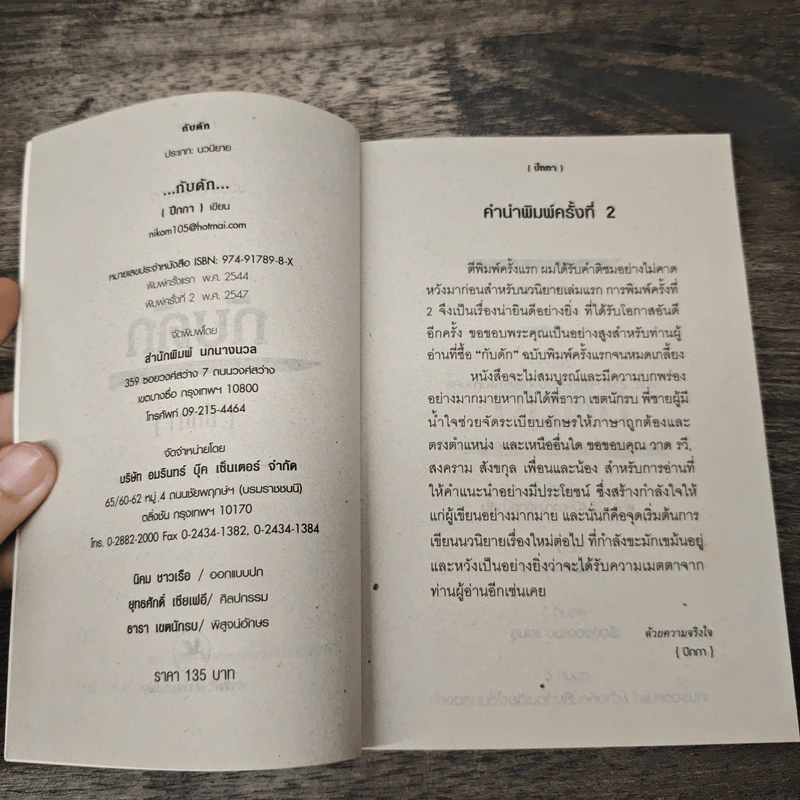 กับดัก
ประเภท: นวนิยาย
...กับดัก...
{ ปีกกา } เขียน
nikom105@hotmai.com
หมายเลขประจำหนังสือ ISBN: 974-91789-8-X
พิมพ์ครั้งแรก พ.ศ. 2544
พิมพ์ครั้งที่ 2 พ.ศ. 2547
จัดพิมพ์โดย
สำนักพิมพ์ นกนางนวล
359 ซอยวงศ์สว่าง 7 ถนนวงศ์สว่าง
เขตบางซื่อ กรุงเทพฯ 10800
โทรศัพท์ 09-215-4464
จัดจำหน่ายโดย
บริษัท อมรินทร์ บุ๊ค เซ็นเตอร์ จำกัด
65/60-62 หมู่ 4 ถนนชัยพฤกษ์ฯ (บรมราชชนนี)
ตลิ่งชัน กรุงเทพฯ 10170
โทร. 0-2882-2000 Fax 0-2434-1382, 0-2434-1384
นิคม ชาวเรือ / ออกแบบปก
ยุทธศักดิ์ เซียเฟอี / ศิลปกรรม
ธารา เขตนักรบ / พิสูจน์อักษร
ราคา 135 บาท
{ ปีกกา }
คำนำพิมพ์ครั้งที่ 2
ตีพิมพ์ครั้งแรก ผมได้รับคำติชมอย่างไม่คาด
หวังมาก่อนสำหรับนวนิยายเล่มแรก การพิมพ์ครั้งที่
2 จึงเป็นเรื่องน่ายินดีอย่างยิ่ง ที่ได้รับโอกาสอันดี
อีกครั้ง ขอขอบพระคุณเป็นอย่างสูงสำหรับท่านผู้
อ่านที่ซื้อ “กับดัก” ฉบับพิมพ์ครั้งแรกจนหมดเกลี้ยง
หนังสือจะไม่สมบูรณ์และมีความบกพร่อง
อย่างมากมายหากไม่ได้พี่ธารา เขตนักรบ พี่ชายผู้มี
น้ำใจช่วยจัดระเบียบอักษรให้ภาษาถูกต้องและ
ตรงตำแหน่ง และเหนืออื่นใด ขอขอบคุณ วาด รวี,
สงคราม สังขกุล เพื่อนและน้อง สำหรับการอ่านที่
ให้คำแนะนำอย่างมีประโยชน์ ซึ่งสร้างกำลังใจให้
แก่ผู้เขียนอย่างมากมาย และนั่นก็คือจุดเริ่มต้นการ
เขียนนวนิยายเรื่องใหม่ต่อไป ที่กำลังขะมักเขม้นอยู่
และหวังเป็นอย่างยิ่งว่าจะได้รับความเมตตาจาก
ท่านผู้อ่านอีกเช่นเคย
ด้วยความจริงใจ
{ ปีกกา }